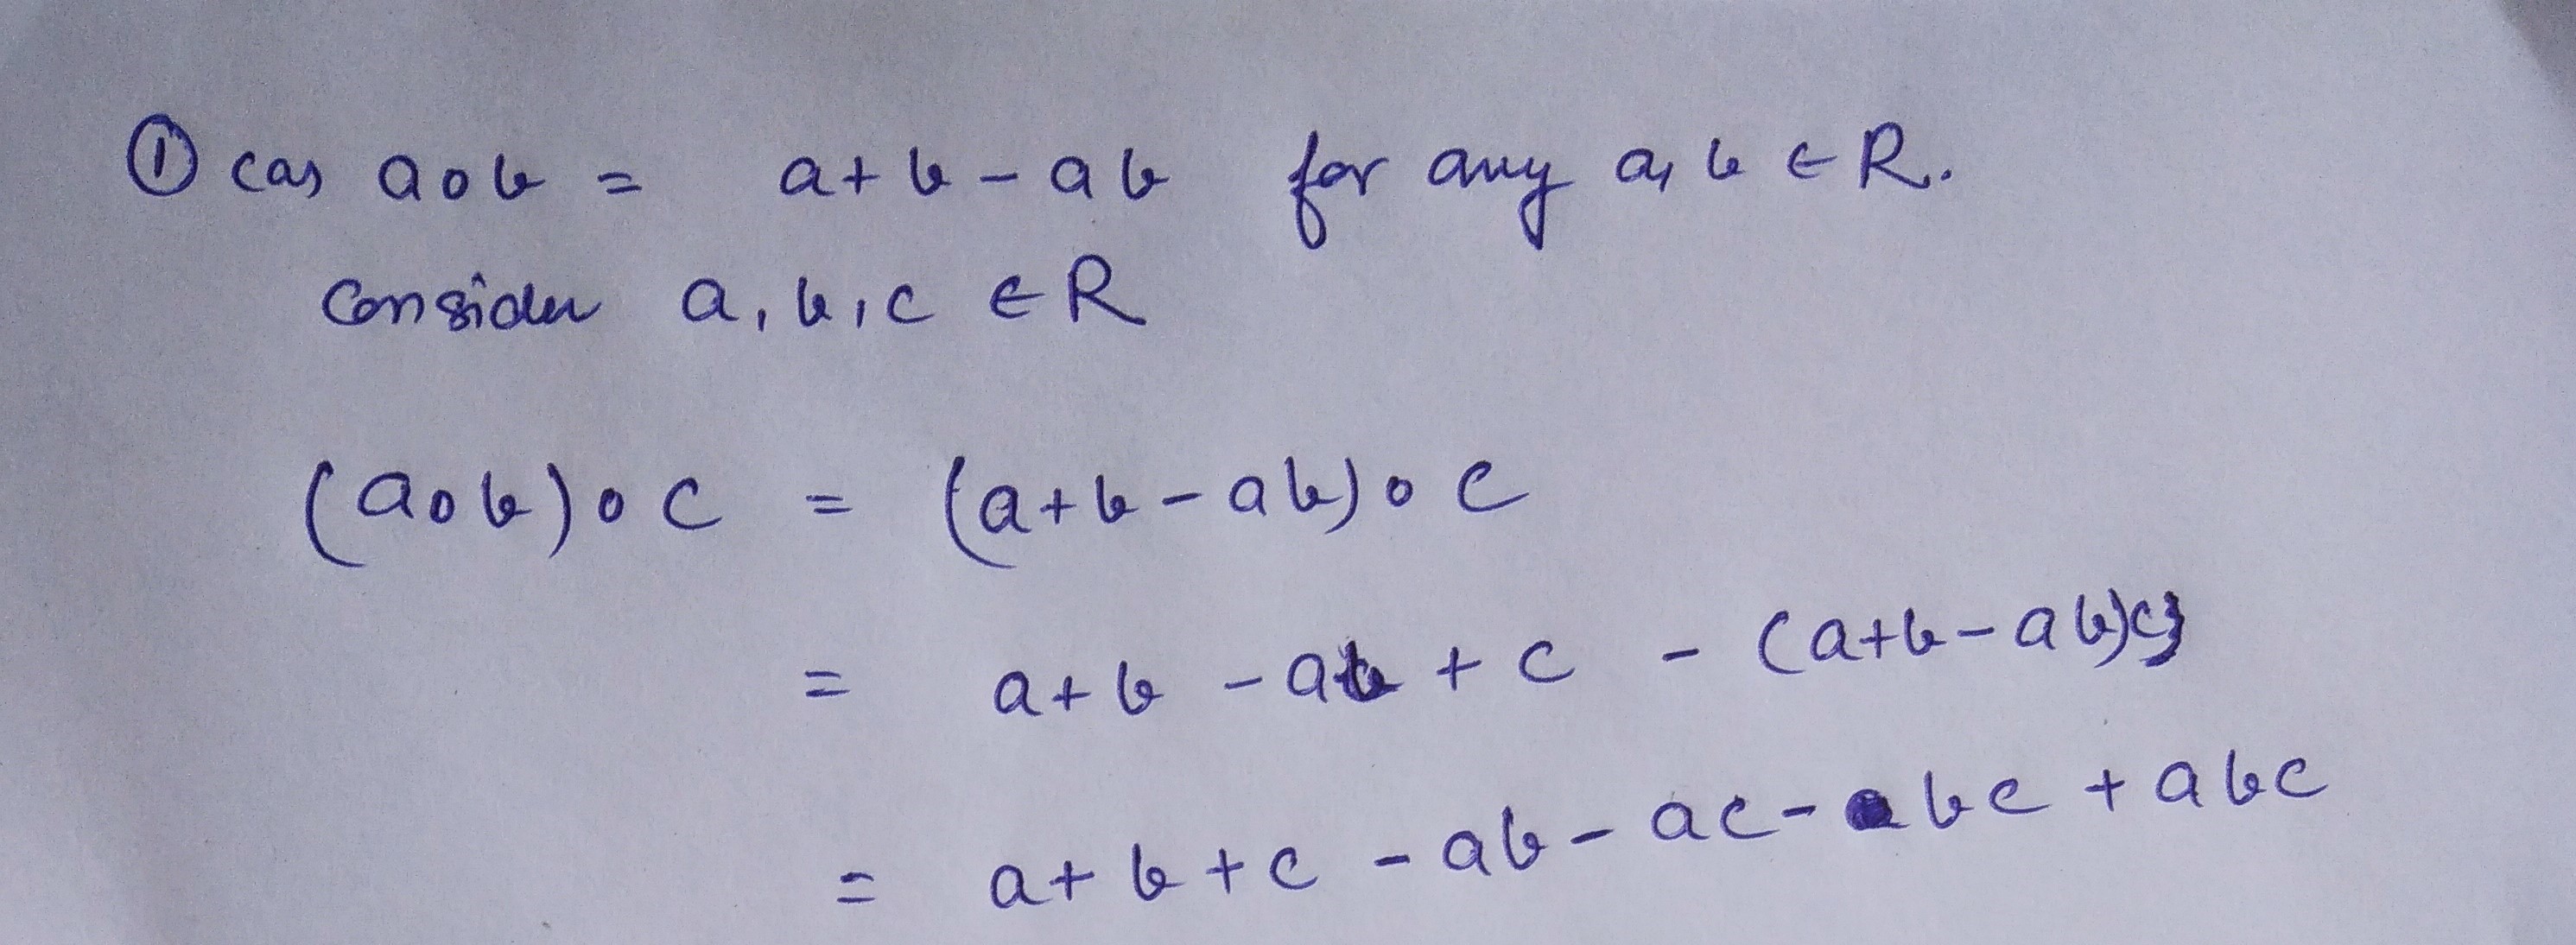 ① (a) a∘b = a+b-ab for any a, b ∈ R.
Consider a, b, c ∈ R
(a∘b)∘c = (a+b-ab)∘c
= a+b-ab+c - (a+b-ab)c
= a+b+c-ab-ac-bc+abc